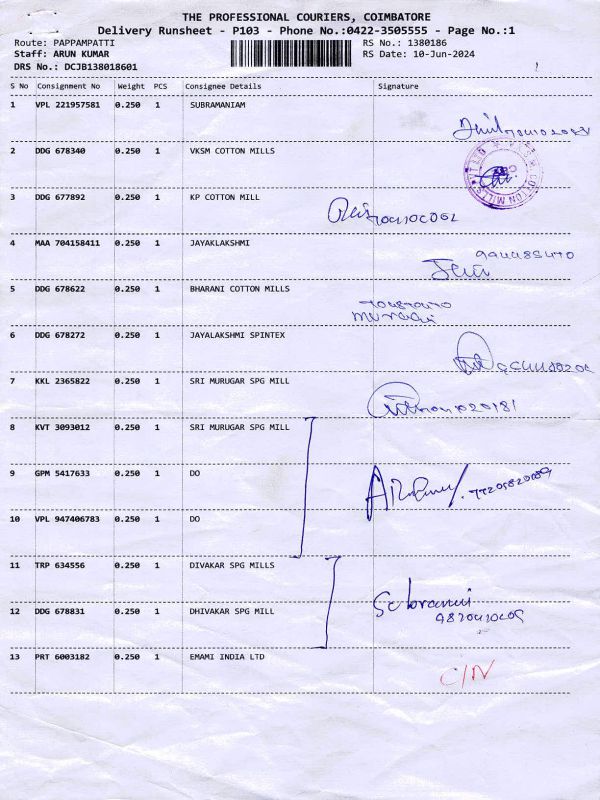 THE PROFESSIONAL COURIERS, COIMBATORE
Delivery Runsheet - P103 - Phone No.:0422-3505555 - Page No.:1
Route: PAPPAMPATTI RS No.: 1380186
Staff: ARUN KUMAR RS Date: 10-Jun-2024
DRS No.: DCJB138018601
S No Consignment No Weight PCS Consignee Details Signature
1 VPL 221957581 0.250 1 SUBRAMANIAM
2 DDG 678340 0.250 1 VKSM COTTON MILLS
3 DDG 677892 0.250 1 KP COTTON MILL
4 MAA 704158411 0.250 1 JAYAKLAKSHMI
5 DDG 678622 0.250 1 BHARANI COTTON MILLS
6 DDG 678272 0.250 1 JAYALAKSHMI SPINTEX
7 KKL 2365822 0.250 1 SRI MURUGAR SPG MILL
8 KVT 3093012 0.250 1 SRI MURUGAR SPG MILL
9 GPM 5417633 0.250 1 DO
10 VPL 947406783 0.250 1 DO
11 TRP 634556 0.250 1 DIVAKAR SPG MILLS
12 DDG 678831 0.250 1 DHIVAKAR SPG MILL
13 PRT 6003182 0.250 1 EMAMI INDIA LTD
C/N